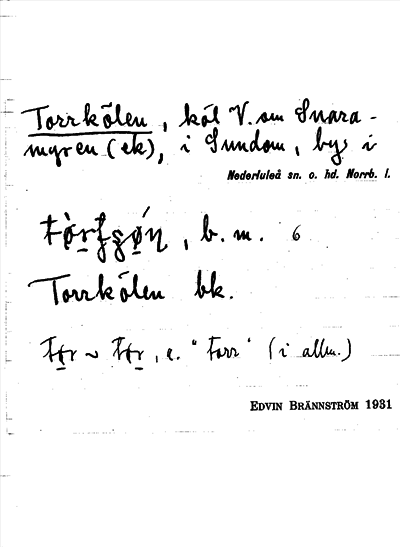 Torrkölen, köl V. om Snara-
myren (ek), i Sundom, bys i
Nederluleå sn. o. hd. Norrb. l.
b. m. 6
Torrkölen bk.
~ , e. "torr" (i allm.)
EDVIN BRÄNNSTRÖM 1931